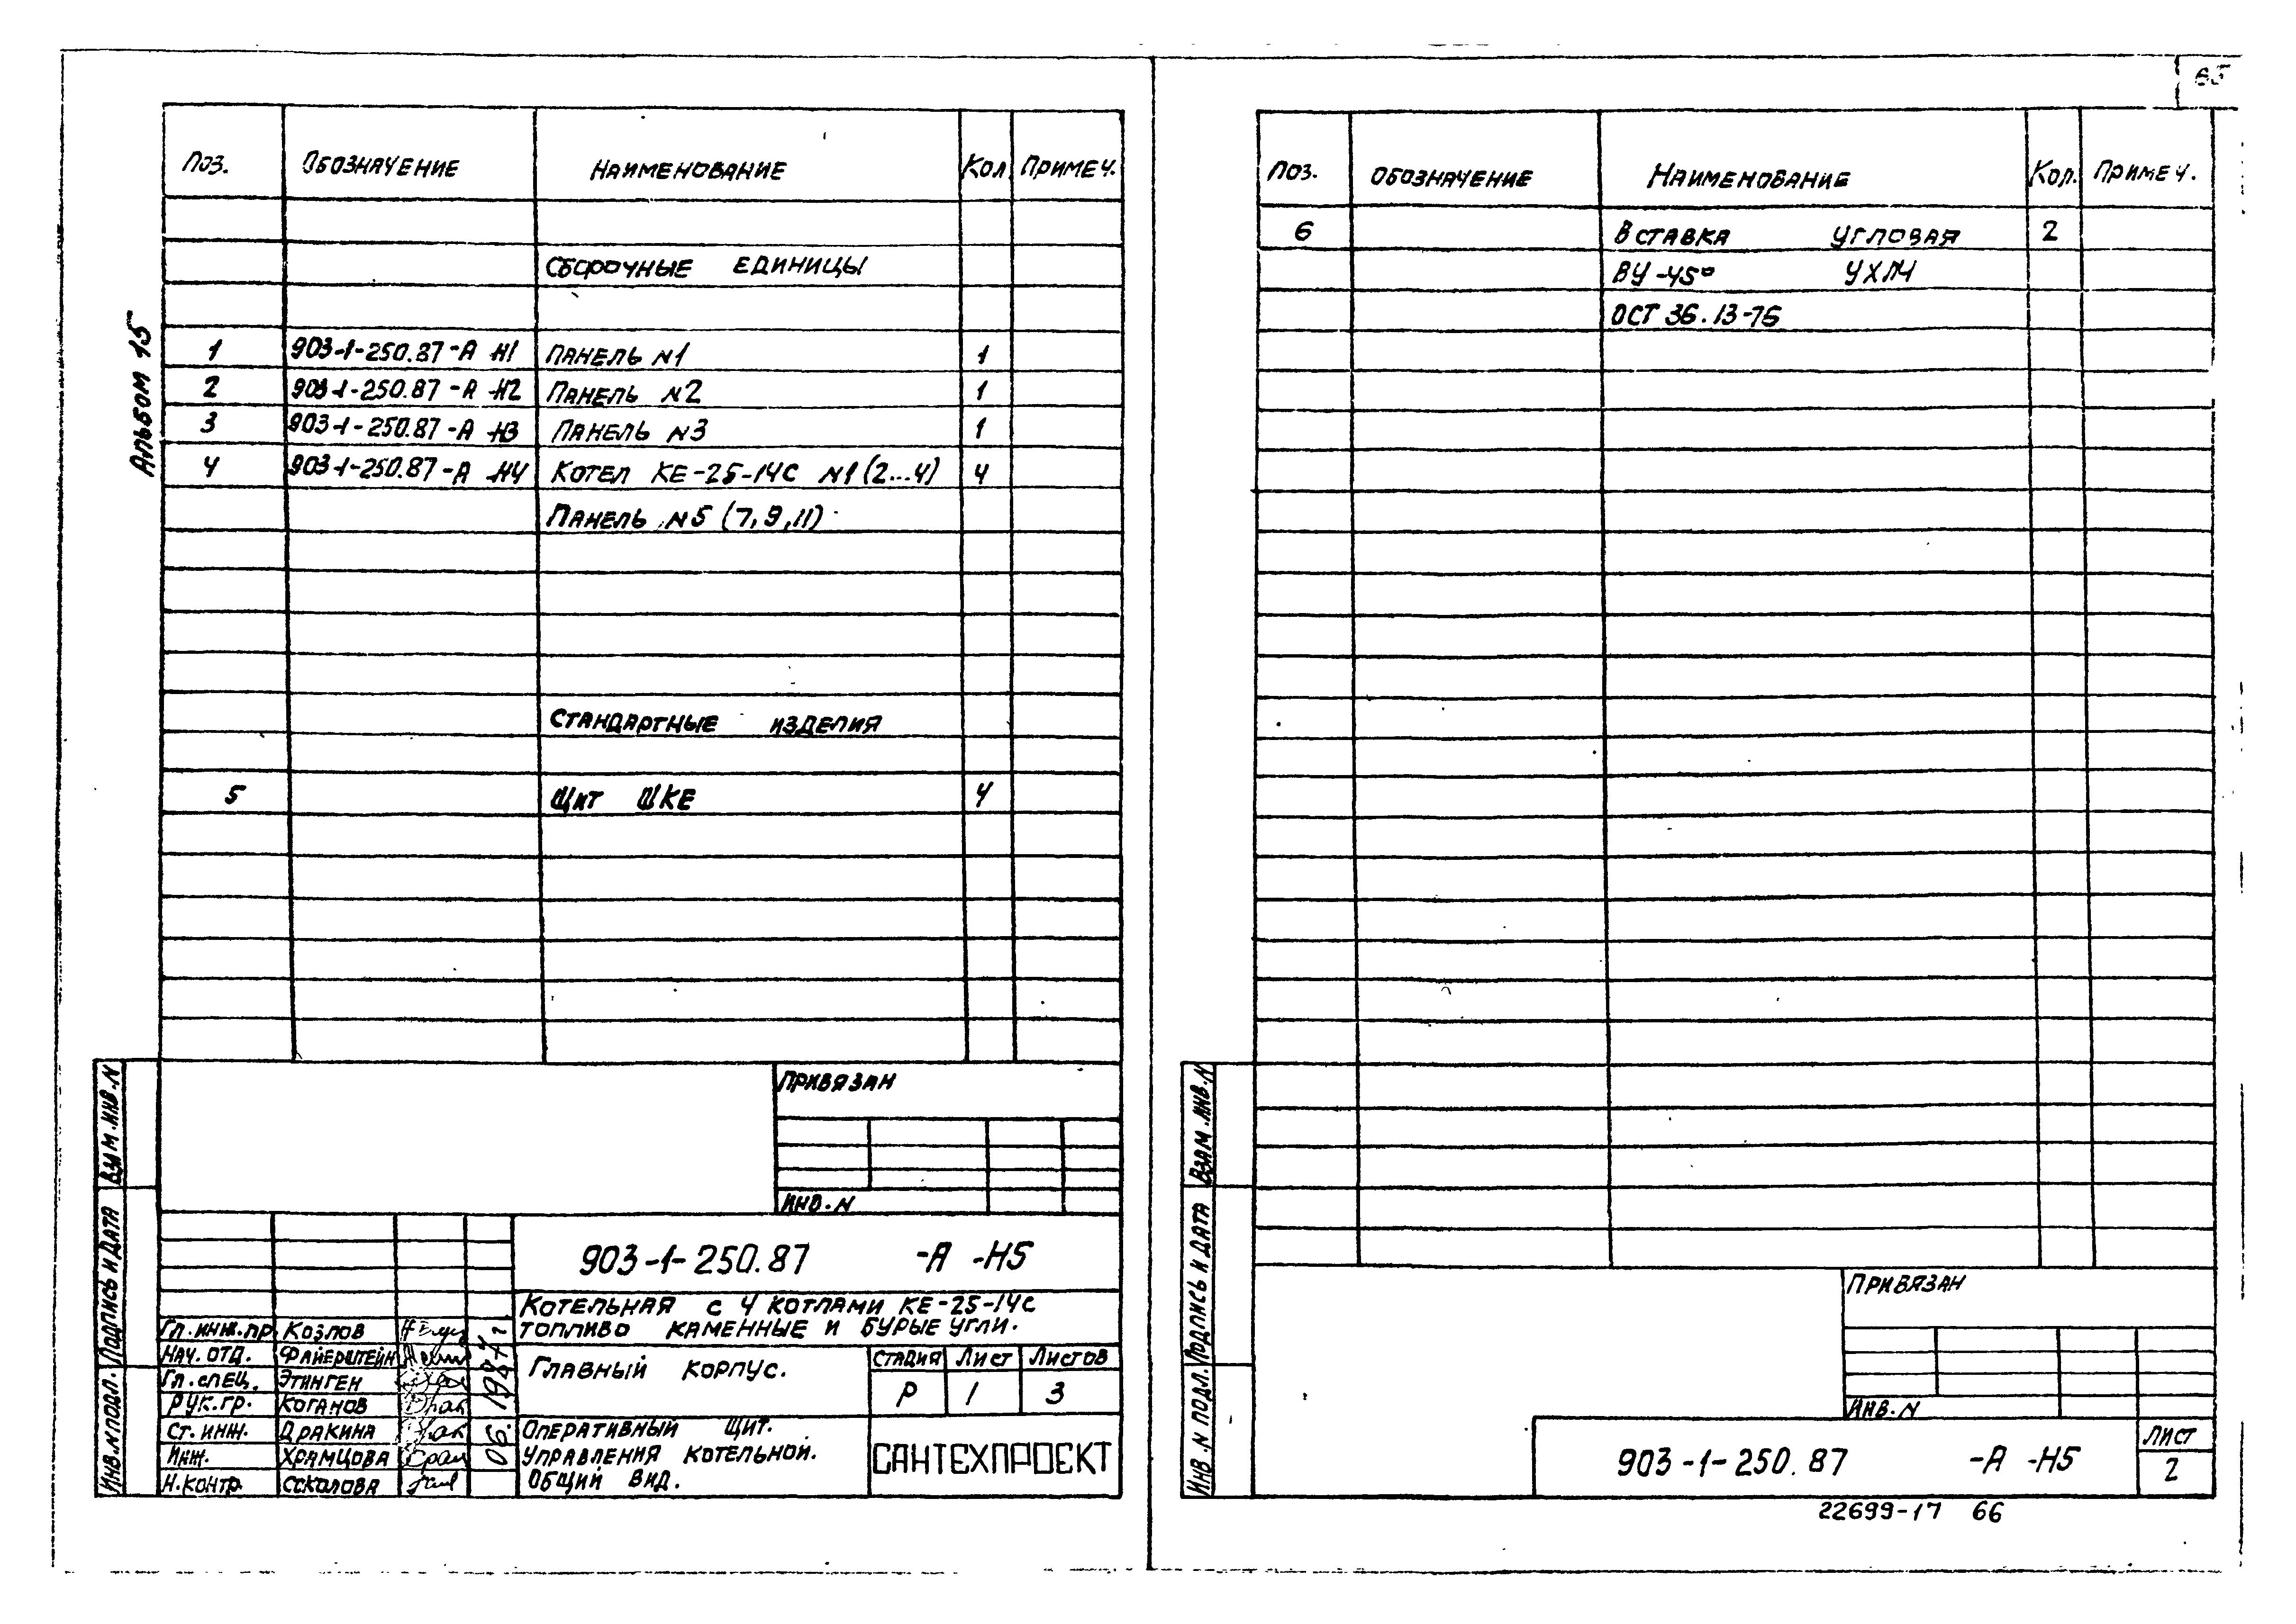 65
Альбом 15
Поз. Обозначение Наименование Кол Примеч.
Сборочные единицы
1 903-1-250.87-А -Н1 Панель N1 1
2 903-1-250.87-А -Н2 Панель N2 1
3 903-1-250.87-А -Н3 Панель N3 1
4 903-1-250.87-А -Н4 Котел КЕ-25-14С N1(2...4) 4
Панель N5 (7,9,11)
Стандартные изделия
5 Щит ЩКЕ 4
Привязан
Инв.N
Взам.инв.N
Подпись и дата
Инв.N подл.
903-1-250.87 -А -Н5
Котельная с 4 котлами КЕ-25-14С
топливо каменные и бурые угли.
Гл.инж.пр. Козлов
Нач.отд. Файерштейн
Гл.спец. Этинген
Рук.гр. Коганов
Ст.инж. Дракина
Инж. Храмцова
Н.контр. Соколова
06. 1987г
Главный корпус.
Стадия Лист Листов
Р 1 3
Оперативный щит.
управления котельной.
Общий вид.
САНТЕХПРОЕКТ
Поз. Обозначение Наименование Кол. Примеч.
6 Вставка угловая 2
ВУ-45° УХЛ4
ОСТ 36.13-76
Взам.инв.N
Подпись и дата
Инв.N подл.
Привязан
Инв.N
903-1-250.87 -А -Н5
Лист
2
22699-17 66